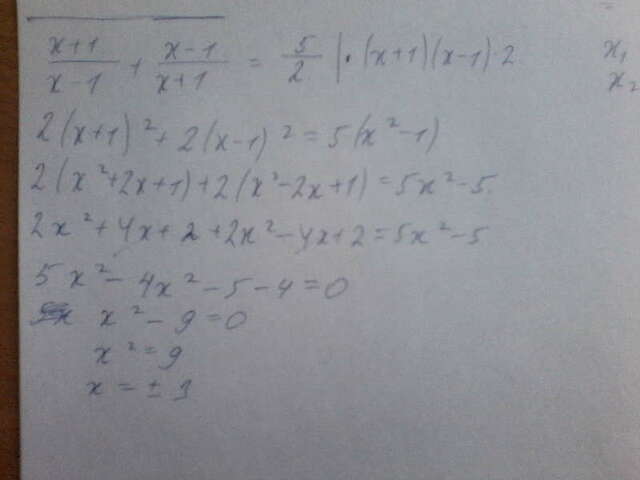 (x+1)/(x-1) + (x-1)/(x+1) = 5/2 | · (x+1)(x-1) 2
x₁
x₂
2(x+1)² + 2(x-1)² = 5(x²-1)
2(x²+2x+1)+2(x²-2x+1) = 5x²-5
2x²+4x+2+2x²-4x+2=5x²-5
5x²-4x²-5-4=0
x²-9=0
x²=9
x=±3